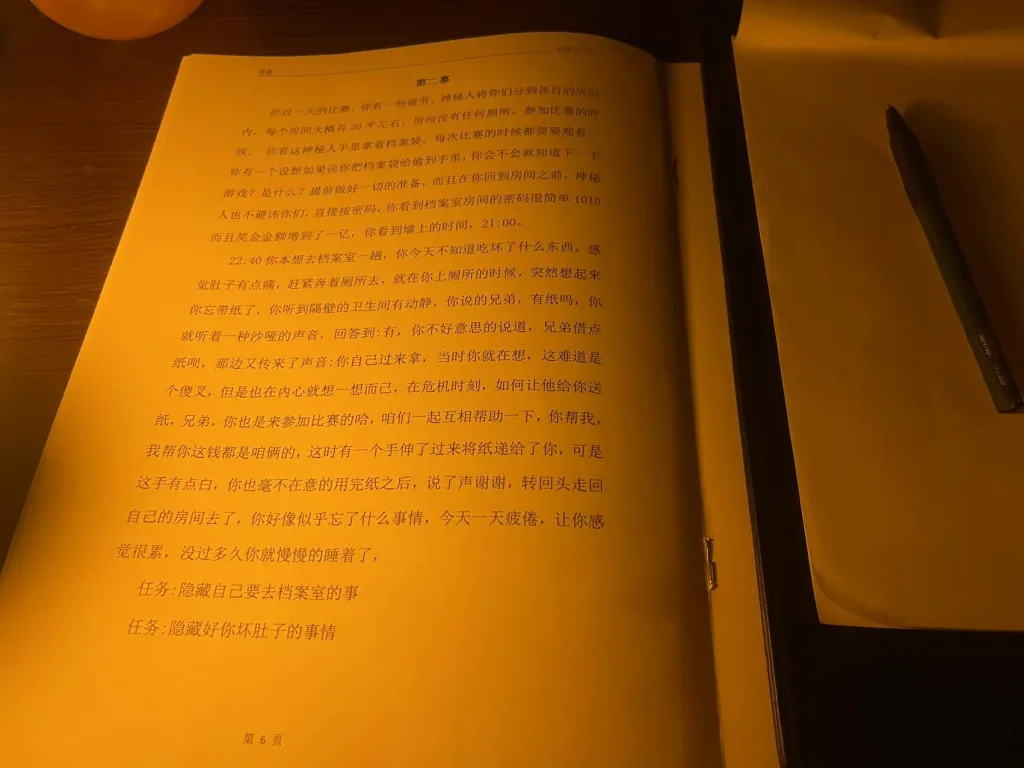 第二幕
经过一天的比赛，你有一些疲劳，神秘人将你们分到各自的房间
内。每个房间大概有 20 平左右，房间没有任何厕所。参加比赛的时
候， 你看这神秘人手里拿着档案袋，每次比赛的时候都需要观看。
你有一个设想如果说你把档案袋给偷到手里，你会不会就知道下一个
游戏？是什么？提前做好一切的准备，而且在你回到房间之前，神秘
人也不避讳你们，直接按密码，你看到档案室房间的密码很简单 1010
而且奖金金额增到了一亿，你看到墙上的时间，21:00。
22:40 你本想去档案室一趟，你今天不知道吃坏了什么东西，感
觉肚子有点痛，赶紧奔着厕所去，就在你上厕所的时候，突然想起来
你忘带纸了，你听到隔壁的卫生间有动静，你说的兄弟，有纸吗，你
就听着一种沙哑的声音，回答到:有，你不好意思的说道，兄弟借点
纸呗，那边又传来了声音:你自己过来拿，当时你就在想，这难道是
个傻叉，但是也在内心就想一想而己，在危机时刻，如何让他给你送
纸，兄弟，你也是来参加比赛的哈，咱们一起互相帮助一下，你帮我，
我帮你这钱都是咱俩的，这时有一个手伸了过来将纸递给了你，可是
这手有点白，你也毫不在意的用完纸之后，说了声谢谢，转回头走回
自己的房间去了，你好像似乎忘了什么事情，今天一天疲倦，让你感
觉很累，没过多久你就慢慢的睡着了，
任务:隐藏自己要去档案室的事
任务:隐藏好你坏肚子的事情
第 6 页